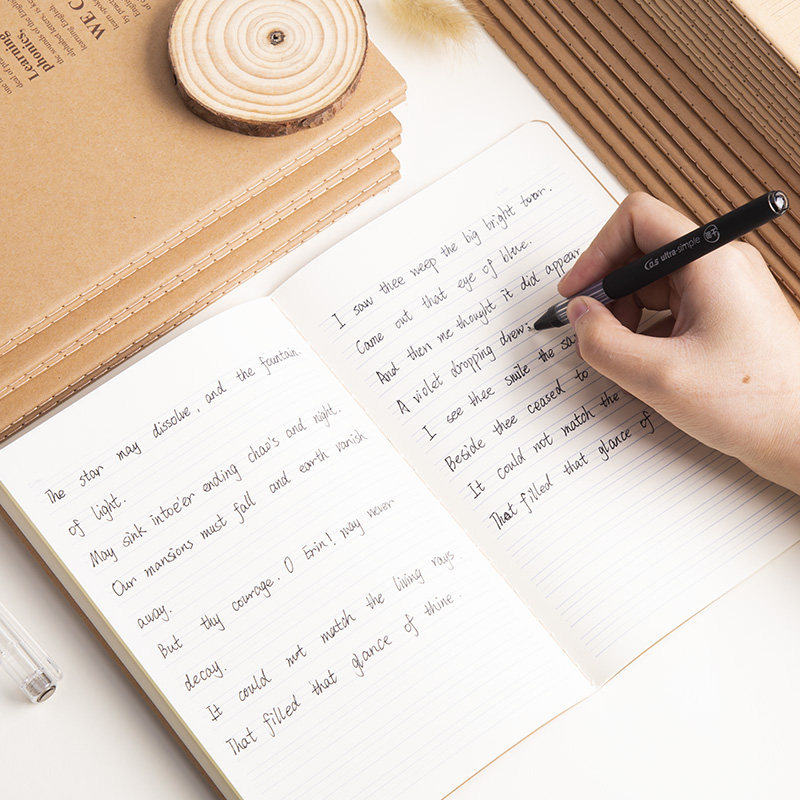 WE C
Learning
phonics,
The star may dissolve, and the fountain
of light.
May sink intoe'er ending chao's and night.
Our mansions must fall and earth vanish
away.
But thy courage. O Erin! may never
decay.
It could not match the living rays
That filled that glance of thine.
I saw thee weep the big bright
Came out that eye of blue.
And then me thought it did appear
A violet dropping drew:
I see thee smile the sa
Beside thee ceased to
It could not match the
That filled that glance of
ultra-simple